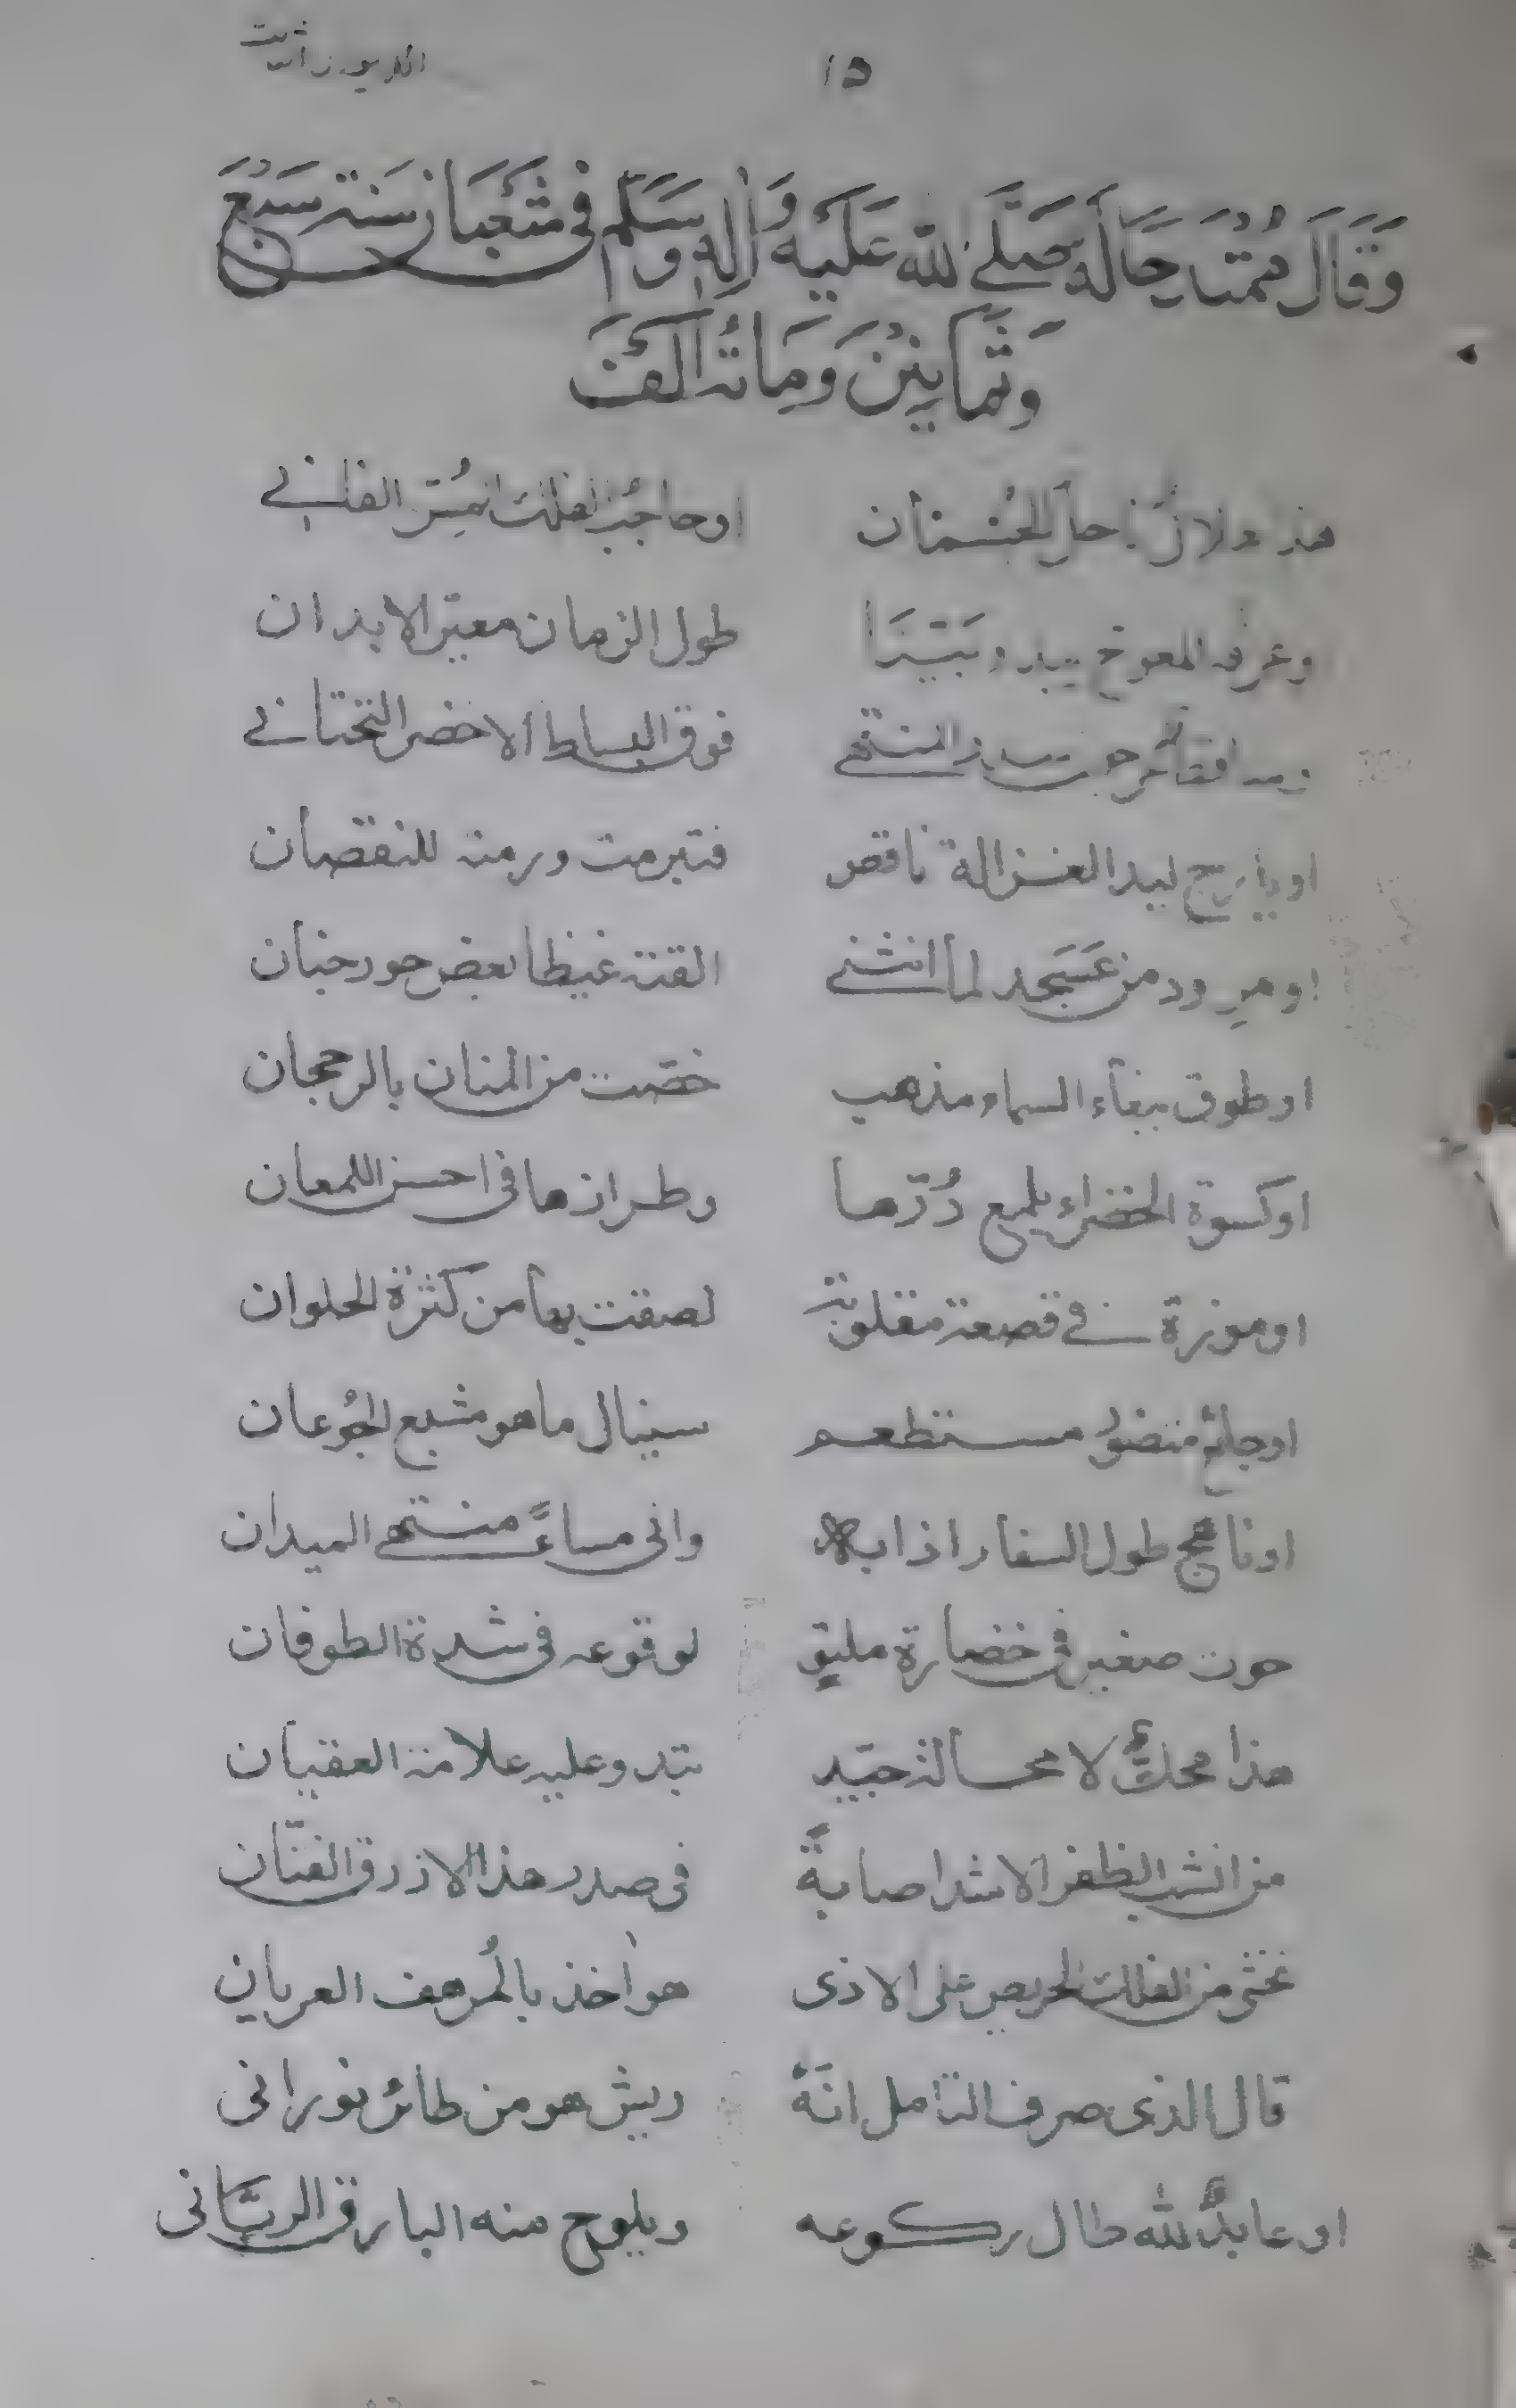 ١٥
وَقَالَ مُمْتَدِحًا لَهُ صَلَّى اللّٰه عَلَيْه وَاٰلِه وَسَلَّم فى شَعْبَان سَنة سَبْعَ
وَثَمَانِيْنَ وَمَائَة وَاَلْفَ
هذا هلال اوحاجب لفلك الفانے
وعرفه المعوج يبدو طول الزمان مغيّر الابدان
فوق البساط الاخضر التحتانے
لبيد الغزالة ناقص فتبرمت ورمته للنقصان
او مرود من عَسَجد لما انثنے القته غيظا بعض حور جنان
او طوق ببغاء السماء مذهب خصّت من المنان بالرجحان
او كسوة الخضراء يلمع دُرّها وطرازها فى احسن اللمعان
او موزة فے قصعة مقلوبة لصقت بها من كثرة الحلوان
او جائع مستطعم سينال ما هو مشبع الجُوعان
او طول السفار اذابه وانى مساءً منتهے الميدان
حوت صغير فى خضارة مليق لوقوعه فى شدة الطوفان
هذا محكٌّ لا محالة جيّد تبدو عليه علامة العقيان
من انشب الظفر الاشد اصابةً فى صدر هذا الازرق الفتّان
نخشى من الفلك الحريص على الاذى هو اٰخذ بالمُرهف العريان
قال الذى صرف التامل انّهٗ ريش هو من طائر نورانى
او عابدٌ لله طال ركوعه ويلوح منه البارق الربّانى